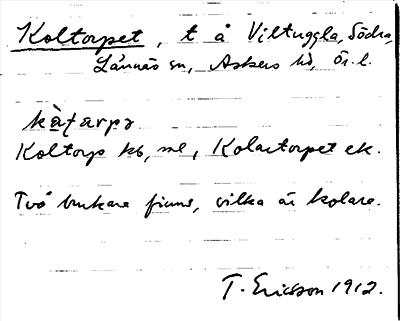 Koltorpet, t å Viltuggla, Södra,
Lännäs sn, Askers hd, Ör. l.
kå̀ƚarpə
Koltorp kb, ml, Kolartorpet ek.
Två brukare finns, vilka är kolare.
T. Ericsson 1912.